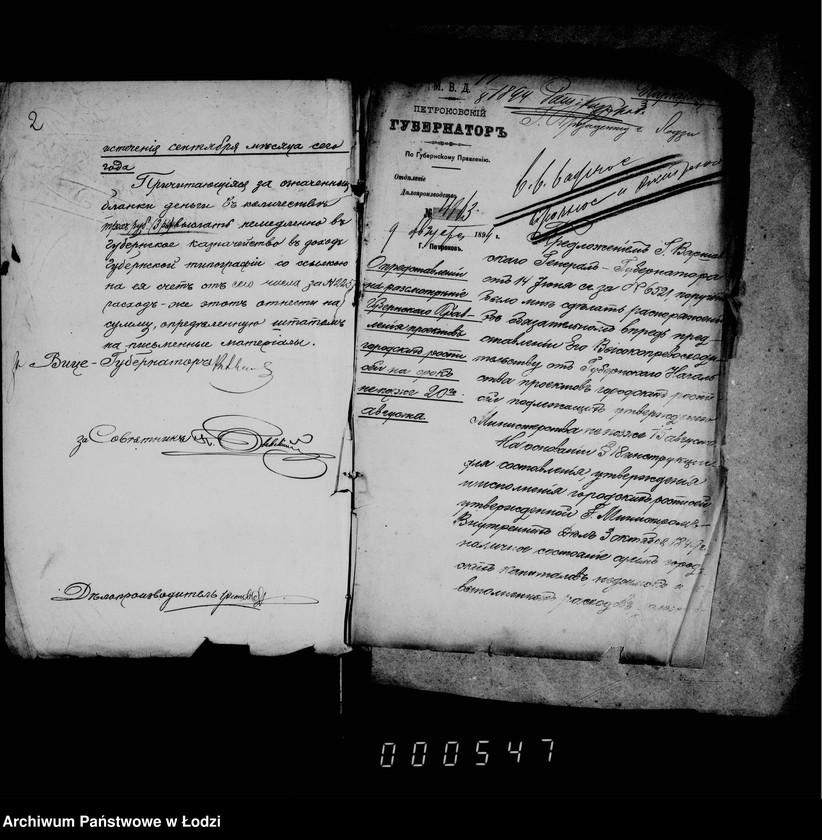 2
истеченія сентября мѣсяца сего
года
Причитающіяся за означенные
бланки деньги въ количествѣ
трехъ руб. выслать немедленно въ
Губернское казначейство въ доходъ
губернской типографіи со ссылкою
на ея счетъ отъ сего числа за №
расходъ-же этотъ отнести на
сумму, опредѣленную штатомъ
на письменные матеріалы.
Вице-Губернаторъ
за Совѣтника
Дѣлопроизводитель
М. В. Д.
ПЕТРОКОВСКІЙ
ГУБЕРНАТОРЪ
По Губернскому Правленію.
Отдѣленіе
Дѣлопроизводство
№ 4913
9 1894 г.
Г. Петроковъ.
О представленіи
на разсмотрѣніе
Губернскаго Прав-
ленія проектовъ
городскихъ роспи
сей на срокъ
не позже 20го
августа
Г. Президенту г. Лодзи
Предложеніемъ Г. Варшав
скаго Генералъ-Губернатора
отъ 14 Іюня се за № 6521 поруч
было мнѣ сдѣлать распоряжен
объ обязательномъ впредь пред-
ставленіи Его Высокопревосходи
тельству отъ Губернскаго Началь
ства проектовъ городскихъ роспи
сей подлежащихъ утвержденію
Министерства не позже 15 августа
На основаніи § 18 инструкціи
для составленія, утвержденія
и исполненія городскихъ росписей
утвержденной Г. Министромъ
Внутреннихъ Дѣлъ 3 октября 184
наличное состояніе суммъ город
скихъ капиталовъ, недоимокъ и
выполненныхъ расходовъ
000547
Archiwum Państwowe w Łodzi